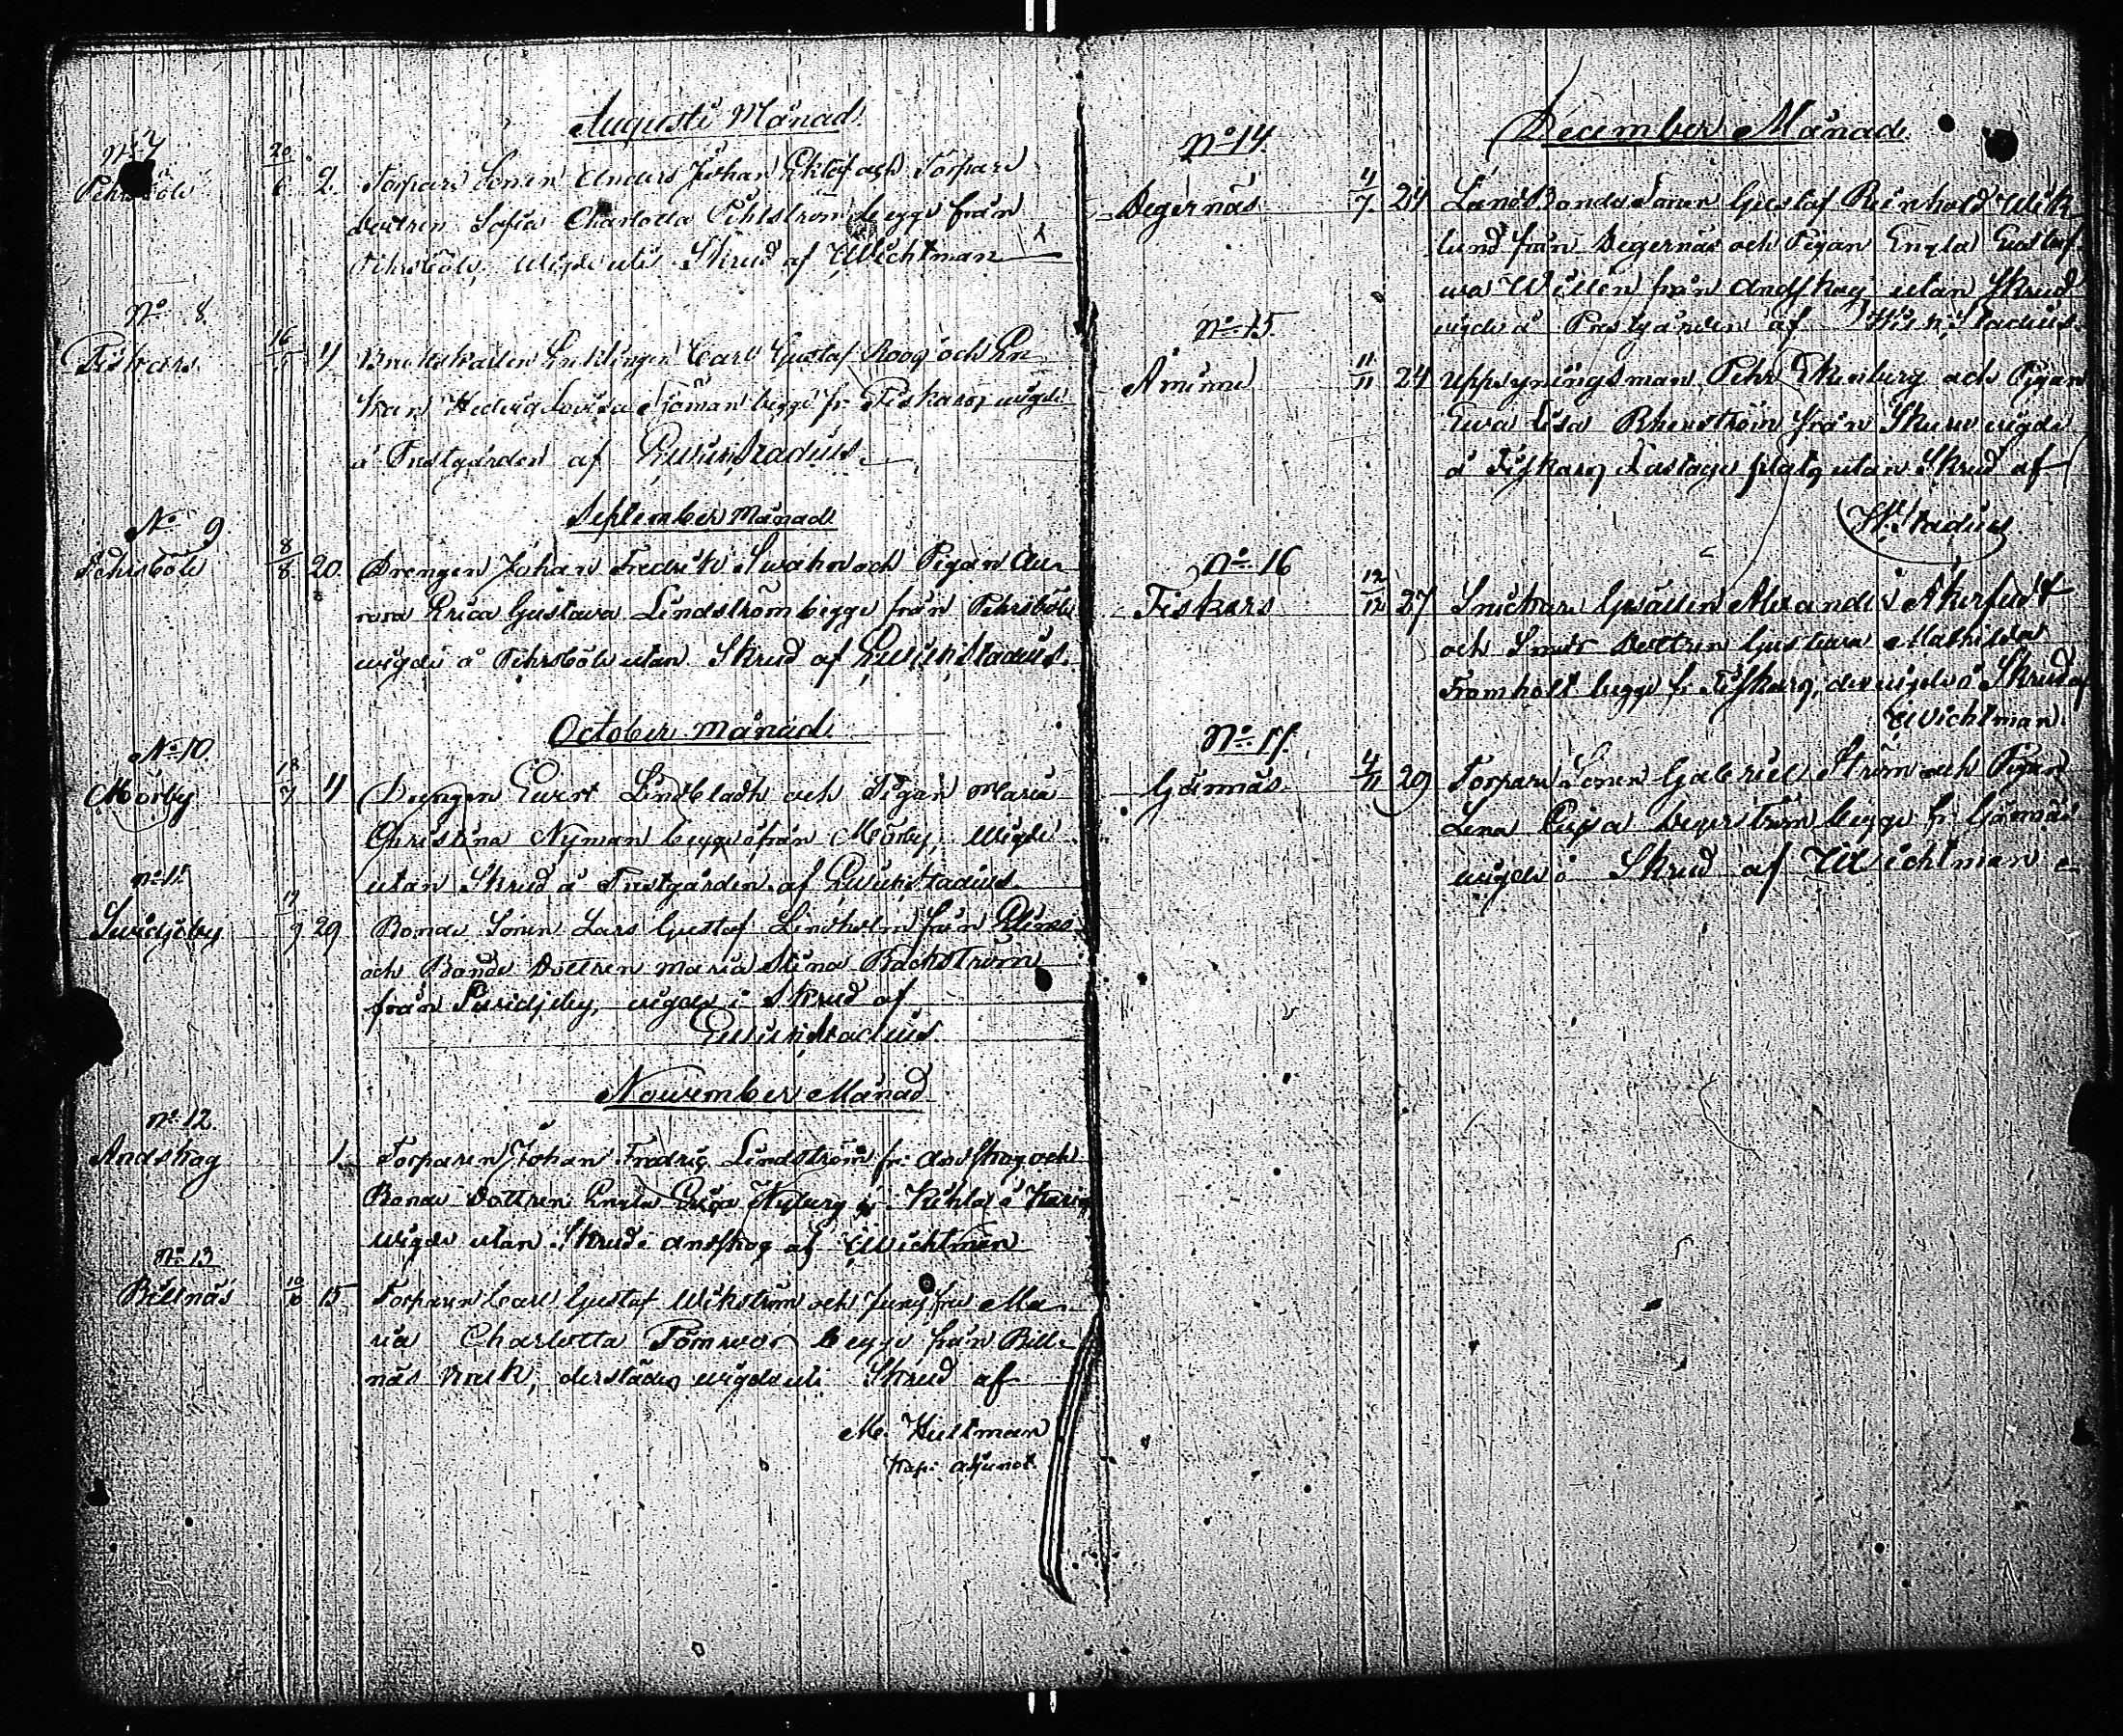 Augusti Månad
No 7
Pehrsböle 20/6 2. Torpare Sonen Anders Johan Eklöf och Torpare
dottren Sofia Charlotta Pihlström begge från
Pehrsböle, wigde uti Skrud af Wichtman
No 8.
Fiskars 16 4 Lärlingen Carl Gustaf Roos och
Hedvig Lovisa Sjöman begge fr. Fiskars, wigde
å Prestgården af Stadius
September Månad
No 9
Pehrsböle 8/8 20. Drengen Johan Fredrik Swahn och Pigan Au-
rora Erica Gustava Lindström begge från Pehrsböle
wigde å Pehrsböle utan Skrud af Stadius.
October Månad.
No 10.
Mörby 18/7 11 Drengen Evert Lindbladh och Pigan Maria
Christina Nyman begge från Mörby, wigde
utan Skrud å Prestgården af Stadius
No 11.
Swidjeby 17/9 29 Bonde Sonen Lars Gustaf Lindholm från
och Bonde Dottren Maria Stina Backström
från Swidjeby, wigde i Skrud af
Stadius.
November Månad
No 12.
Andskog 1. Torparen Johan Fredrig Lindström fr. Andskog och
Bonde Dottren Engla Nyberg fr. Kihla i Karis
wigde utan Skrud i Andskog af Wichtman
No 13
Billnäs 10/10 15 Torparen Carl Gustaf Wikström och Jungfru Ma-
ria Charlotta begge från Bill-
näs Bruk, derstädes wigde uti Skrud af
M. Hultman
Kap: Adjunct.
December Månad.
No 14.
Degernäs 4/7 24 LandBonde Sonen Gustaf Reinhold Wik-
lund från Degernäs och Pigan Engla Gustaf-
wa Willén från Andskog utan Skrud
wigde å Prestgården af Stadius.
No 15
Åminne 11/11 24 Uppsyningsman Pehr Ekeberg och Pigan
Ewa Lisa Rhenström från Skuru wigde
å Fiskars Lastageplats utan Skrud af
Stadius
No 16
Fiskars 12/12 27 Snickare Gesällen Alexander Åkerfeldt
och Smeds Dottren Gustava Mathilda
Framholt begge fr. Fiskars, der wigde i Skrud af
Wichtman.
No 17.
Gömnäs 4/11 29 Torpare Sonen Gabriel Ström och Pigan
Lena Cajsa Degerström begge fr. Gömnäs
wigde i Skrud af Wichtman